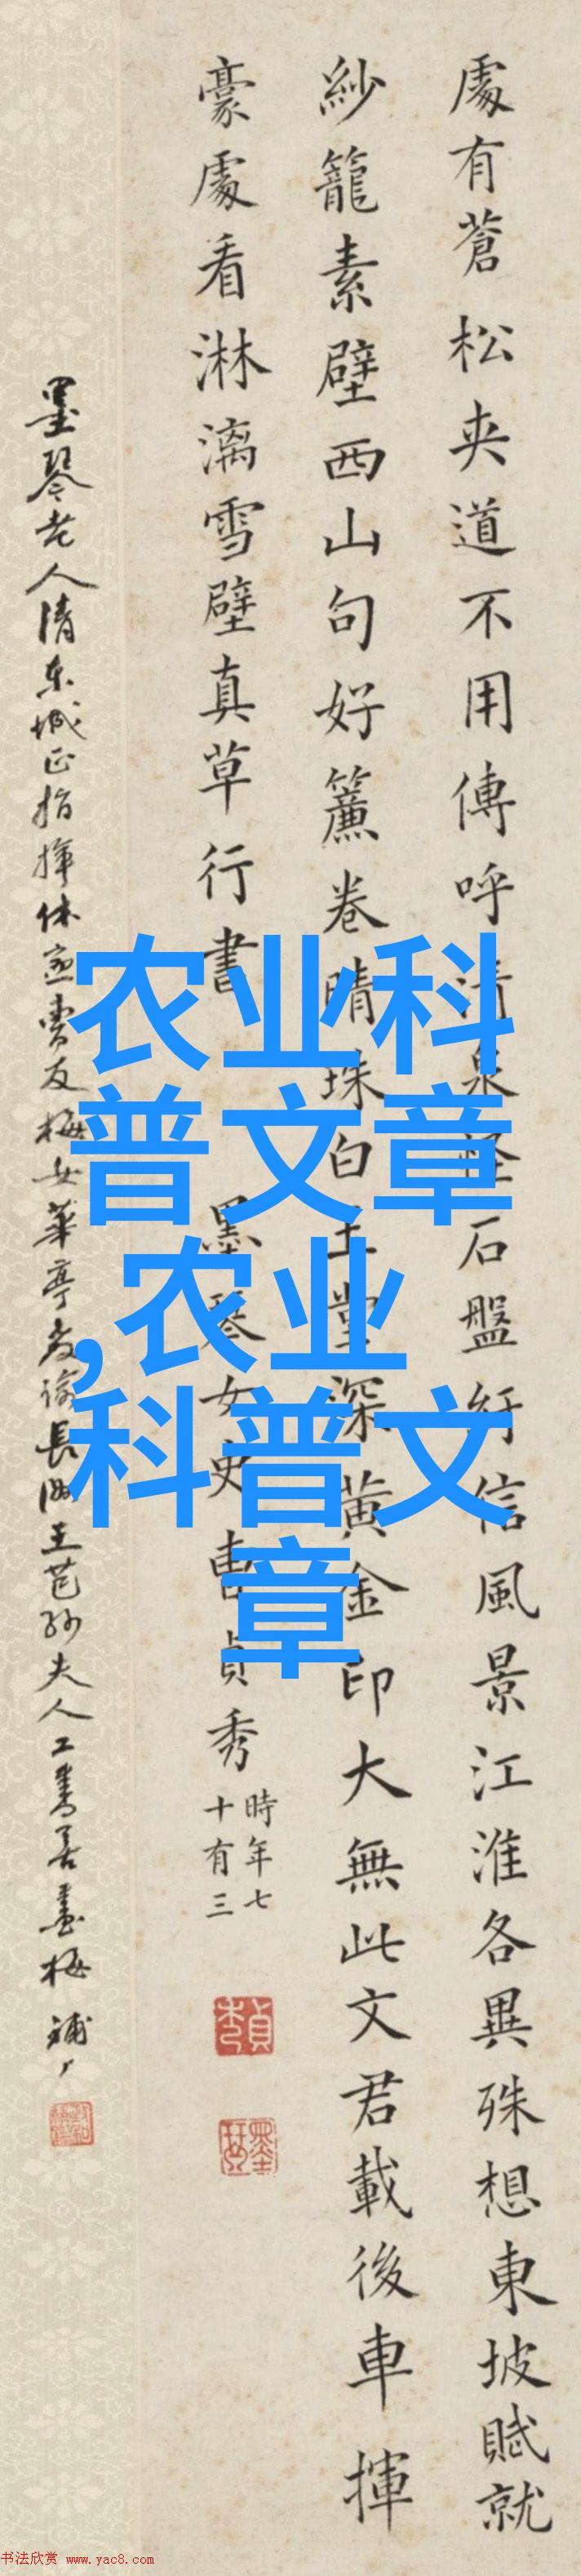 處有蒼松夾道不用傳呼清泉怪石盤紆信風景江淮各異殊想東坡賦就
紗籠素壁西山句好簾卷晴珠白玉堂深黃金印大無此文君載後車揮
豪處看淋漓雪壁真草行書
墨琴女史曹貞秀
時年七
十有三
墨琴老人清東城正指揮休寧曹友梅女華亭教諭長洲王芑孫夫人工書善畫梅
农业科
普文章
,农业
科普文
章
书法欣赏 www.yac8.com